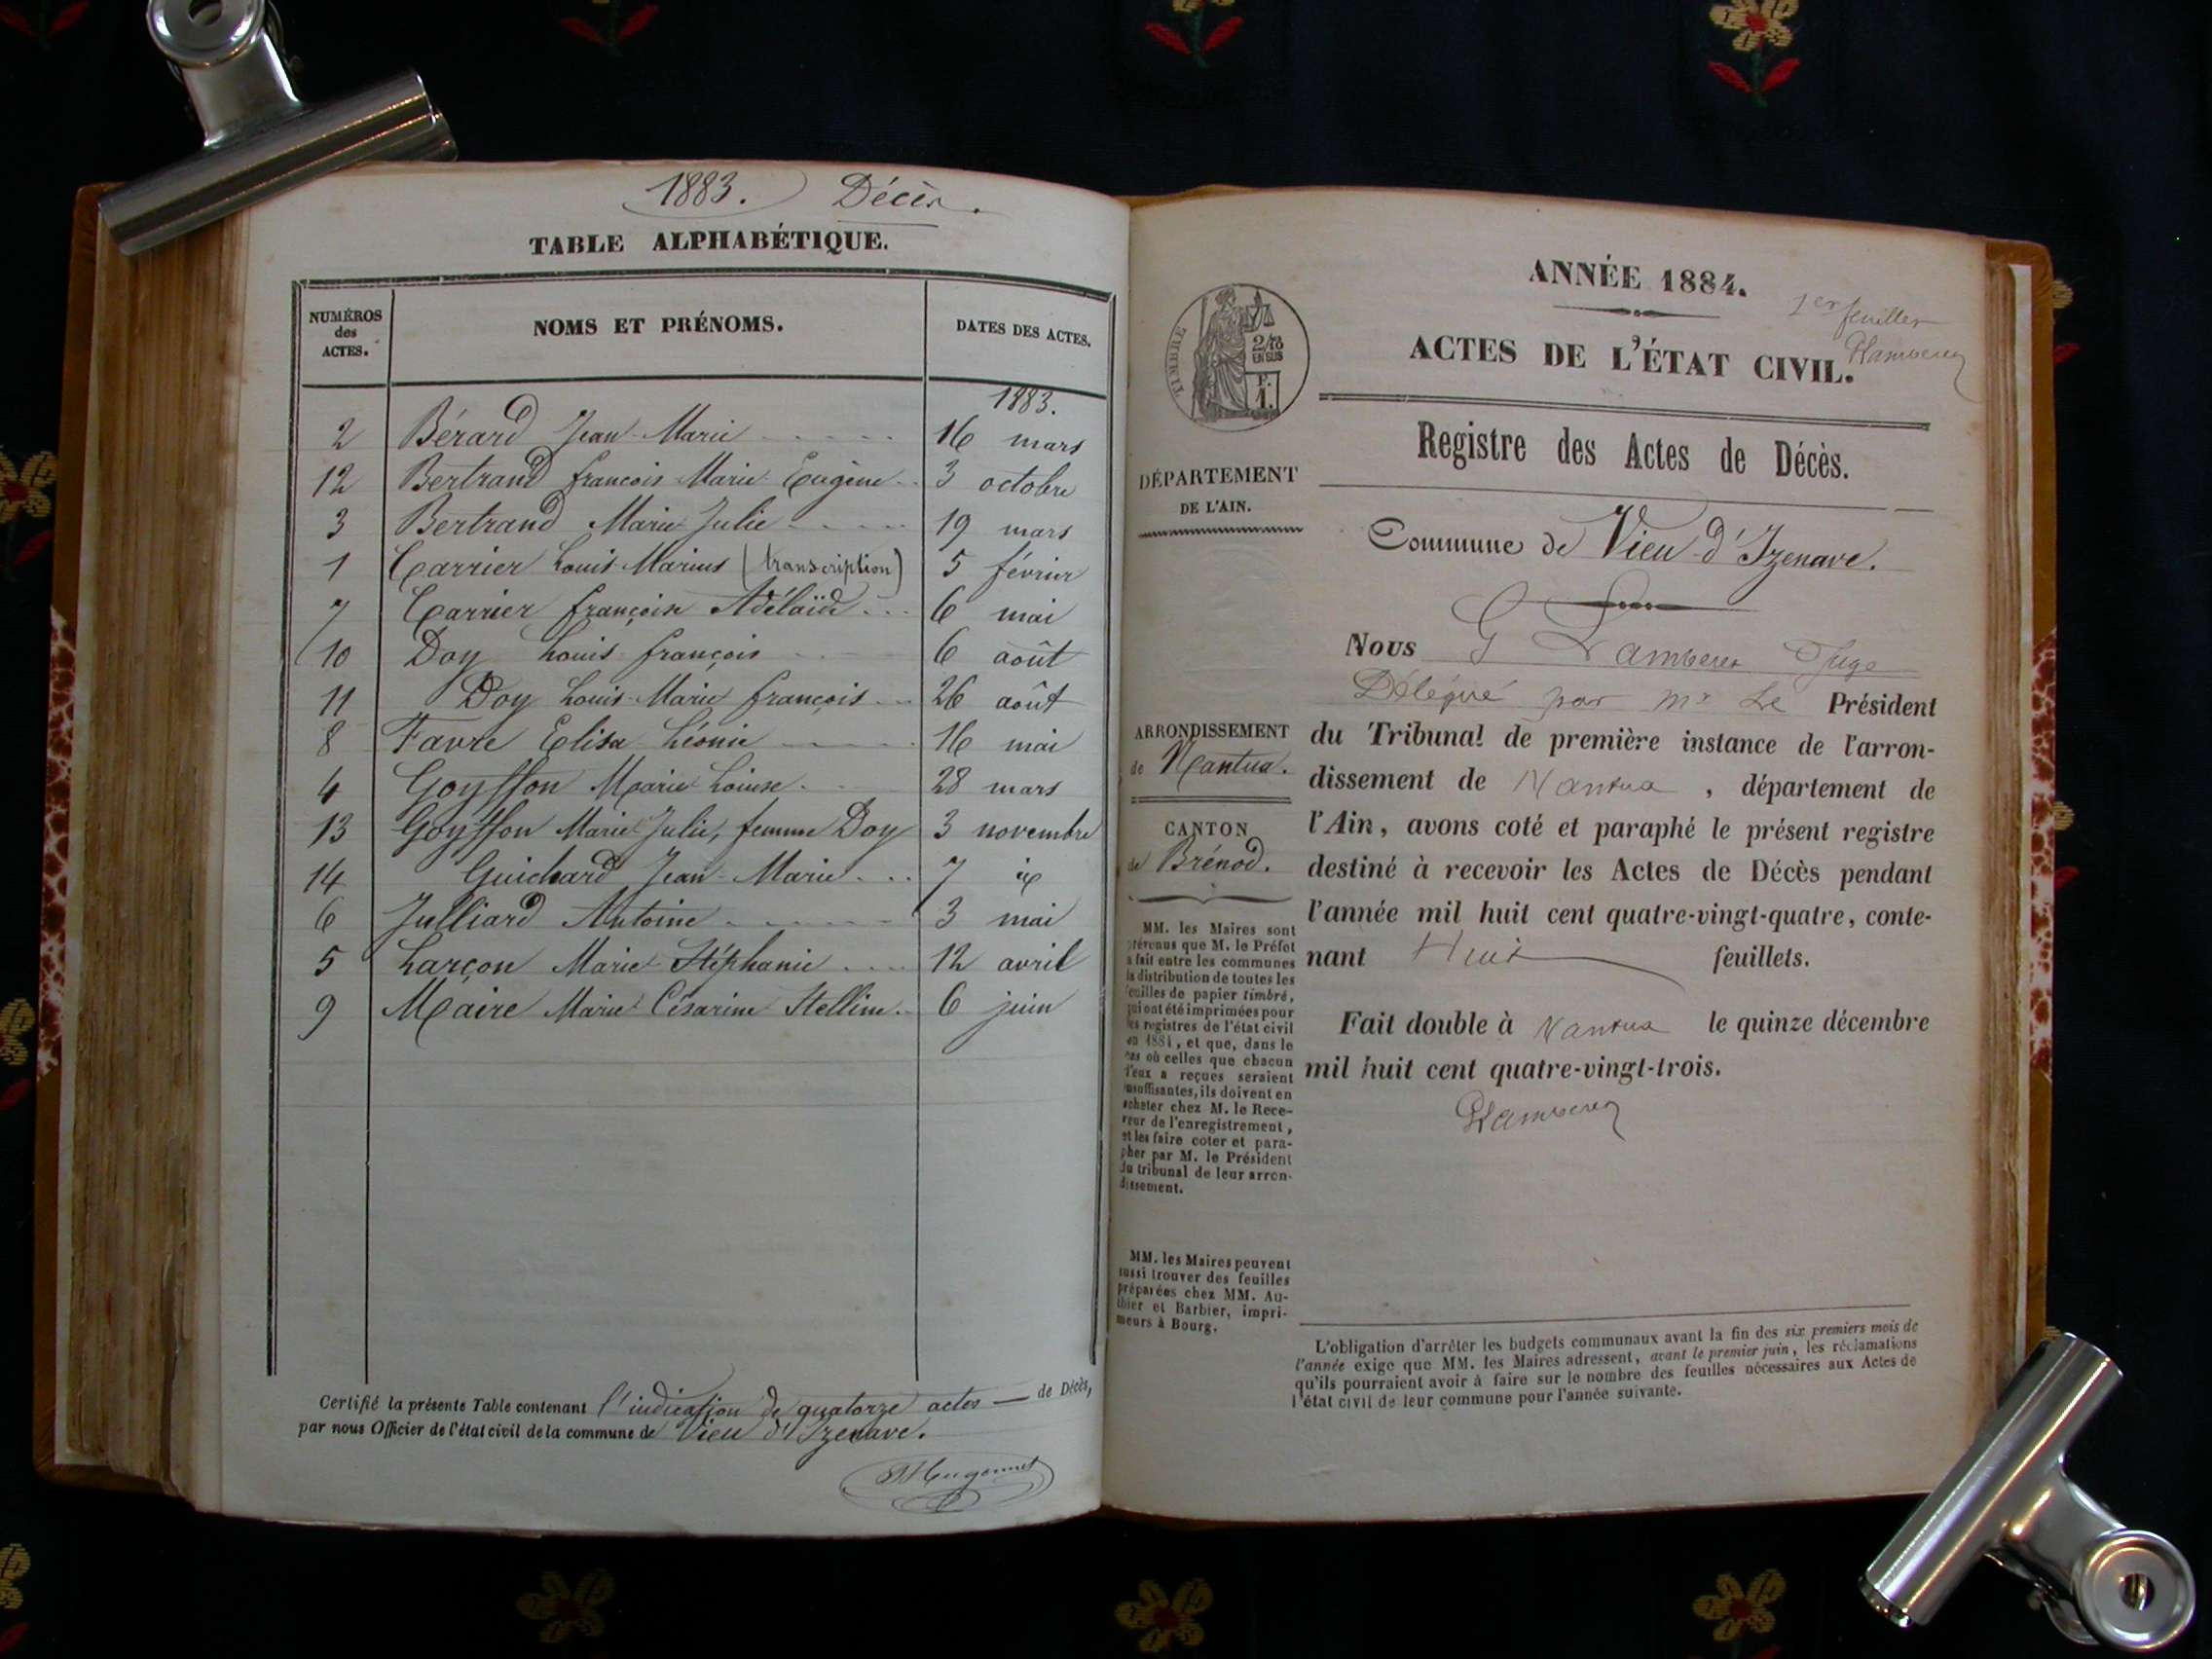 1883. Décès.
TABLE ALPHABÉTIQUE.
NUMÉROS des ACTES. NOMS ET PRÉNOMS. DATES DES ACTES.
1883.
2 Bérard Jean-Marie 16 mars
12 Bertrand françois Marie Eugène 3 octobre
3 Bertrand Marie Julie 19 mars
1 Carrier Louis Marius (transcription) 5 février
7 Carrier françoise Adélaïde 6 mai
10 Doy Louis françois 6 août
11 Doy Louis Marie françois 26 août
8 Favre Elisa Léonie 16 mai
4 Goyffon Marie Louise 28 mars
13 Goyffon Marie Julie, femme Doy 3 novembre
14 Guichard Jean-Marie 7
6 Julliard Antoine 3 mai
5 Larçon Marie Stéphanie 12 avril
9 Maire Marie Césarine Stelline 6 juin
Certifié la présente Table contenant l'indication de quatorze actes — de Décès,
par nous Officier de l'état civil de la commune de Vieu d'Izenave.
Hugonnet
ANNÉE 1884.
1er feuillet
ACTES DE L'ÉTAT CIVIL.
TIMBRE
2/10
EN SUS
F.
1.
Registre des Actes de Décès.
DÉPARTEMENT
DE L'AIN.
Commune de Vieu-d'Izenave.
ARRONDISSEMENT
de Nantua.
CANTON
de Brénod.
MM. les Maires sont
prévenus que M. le Préfet
a fait entre les communes
la distribution de toutes les
feuilles de papier timbré,
qui ont été imprimées pour
les registres de l'état civil
en 1884, et que, dans le
cas où celles que chacun
d'eux a reçues seraient
insuffisantes, ils doivent en
acheter chez M. le Rece-
veur de l'enregistrement,
et les faire coter et para-
pher par M. le Président
du tribunal de leur arron-
dissement.
MM. les Maires peuvent
aussi trouver des feuilles
préparées chez MM. Au-
thier et Barbier, impri-
meurs à Bourg.
Nous G Lamberet Juge
Délégué par Mr Le Président
du Tribunal de première instance de l'arron-
dissement de Nantua, département de
l'Ain, avons coté et paraphé le présent registre
destiné à recevoir les Actes de Décès pendant
l'année mil huit cent quatre-vingt-quatre, conte-
nant Huit feuillets.
Fait double à Nantua le quinze décembre
mil huit cent quatre-vingt-trois.
L'obligation d'arrêter les budgets communaux avant la fin des six premiers mois de
l'année exige que MM. les Maires adressent, avant le premier juin, les réclamations
qu'ils pourraient avoir à faire sur le nombre des feuilles nécessaires aux Actes de
l'état civil de leur commune pour l'année suivante.